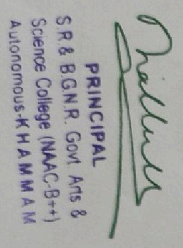 PRINCIPAL
S.R & B.G.N.R. Govt. Arts &
Science College (NAAC-B++)
Autonomous-KHAMMAM